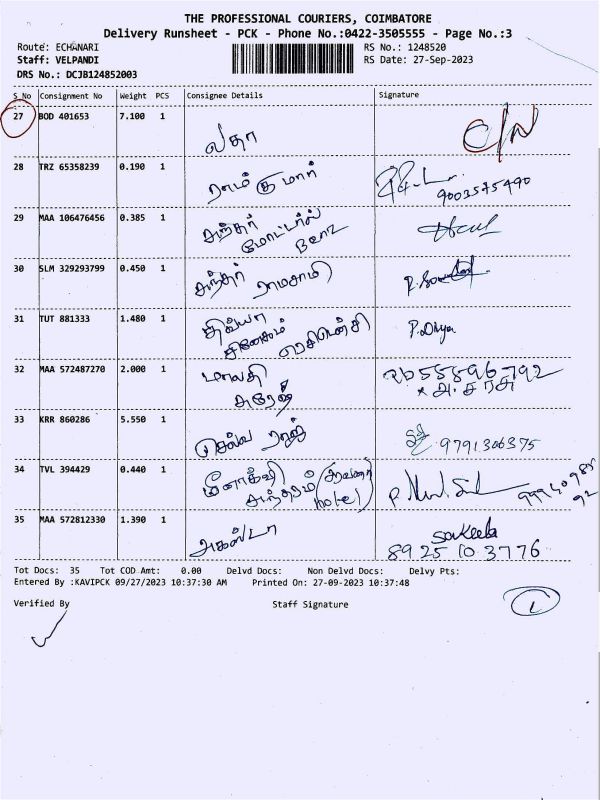 THE PROFESSIONAL COURIERS, COIMBATORE
Delivery Runsheet - PCK - Phone No.:0422-3505555 - Page No.:3
Route: ECHANARI RS No.: 1248520
Staff: VELPANDI RS Date: 27-Sep-2023
DRS No.: DCJB124852003
S No Consignment No Weight PCS Consignee Details Signature
27 BOD 401653 7.100 1
லதா C/N
28 TRZ 65358239 0.190 1
ராம் குமார் 9003575490
29 MAA 106476456 0.385 1
சுந்தர்
மோட்டார்ஸ்
30 SLM 329293799 0.450 1
சுந்தர் ராமசாமி
31 TUT 881333 1.480 1
திவ்யா P. Divya
சினேகம் ரெசிடென்சி
32 MAA 572487270 2.000 1
மாலதி
சுரேஷ்
33 KRR 860286 5.550 1
செல்வ ராஜ் 9791306375
34 TVL 394429 0.440 1
மீனாக்ஷி
சுந்தரம்
35 MAA 572812330 1.390 1
Sakeela
8925103776
Tot Docs: 35 Tot COD Amt: 0.00 Delvd Docs: Non Delvd Docs: Delvy Pts:
Entered By :KAVIPCK 09/27/2023 10:37:30 AM Printed On: 27-09-2023 10:37:48
Verified By Staff Signature